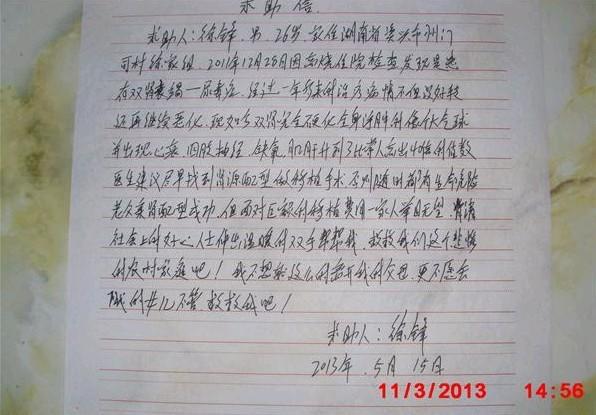 求助信
求助人:徐锋 男 26岁 家住湖南省 市
村徐家组 2011年12月28日因高烧住院检查发现是患
有双肾衰竭—尿毒症 经过一年多来的治疗病情不但没好转
还再继续恶化 现如今双肾完全硬化全身浮肿的像气球
并出现心衰 四肢抽经 缺氧 肌肝升到了比常人高出 的倍数
医生建议尽早找到肾源配型做移植手术 否则随时都有生命危险
父亲肾配型成功 但面对巨额的移植费用一家人举目无望 肯请
社会上的好心人仕伸出温暖的双手帮帮我 救救我们这个悲惨
的农村家庭吧! 我不想就这么的离开我的父母 更不愿丢
的女儿不管 救救我吧!
求助人:徐锋
2013年 5月 15日
11/3/2013 14:56